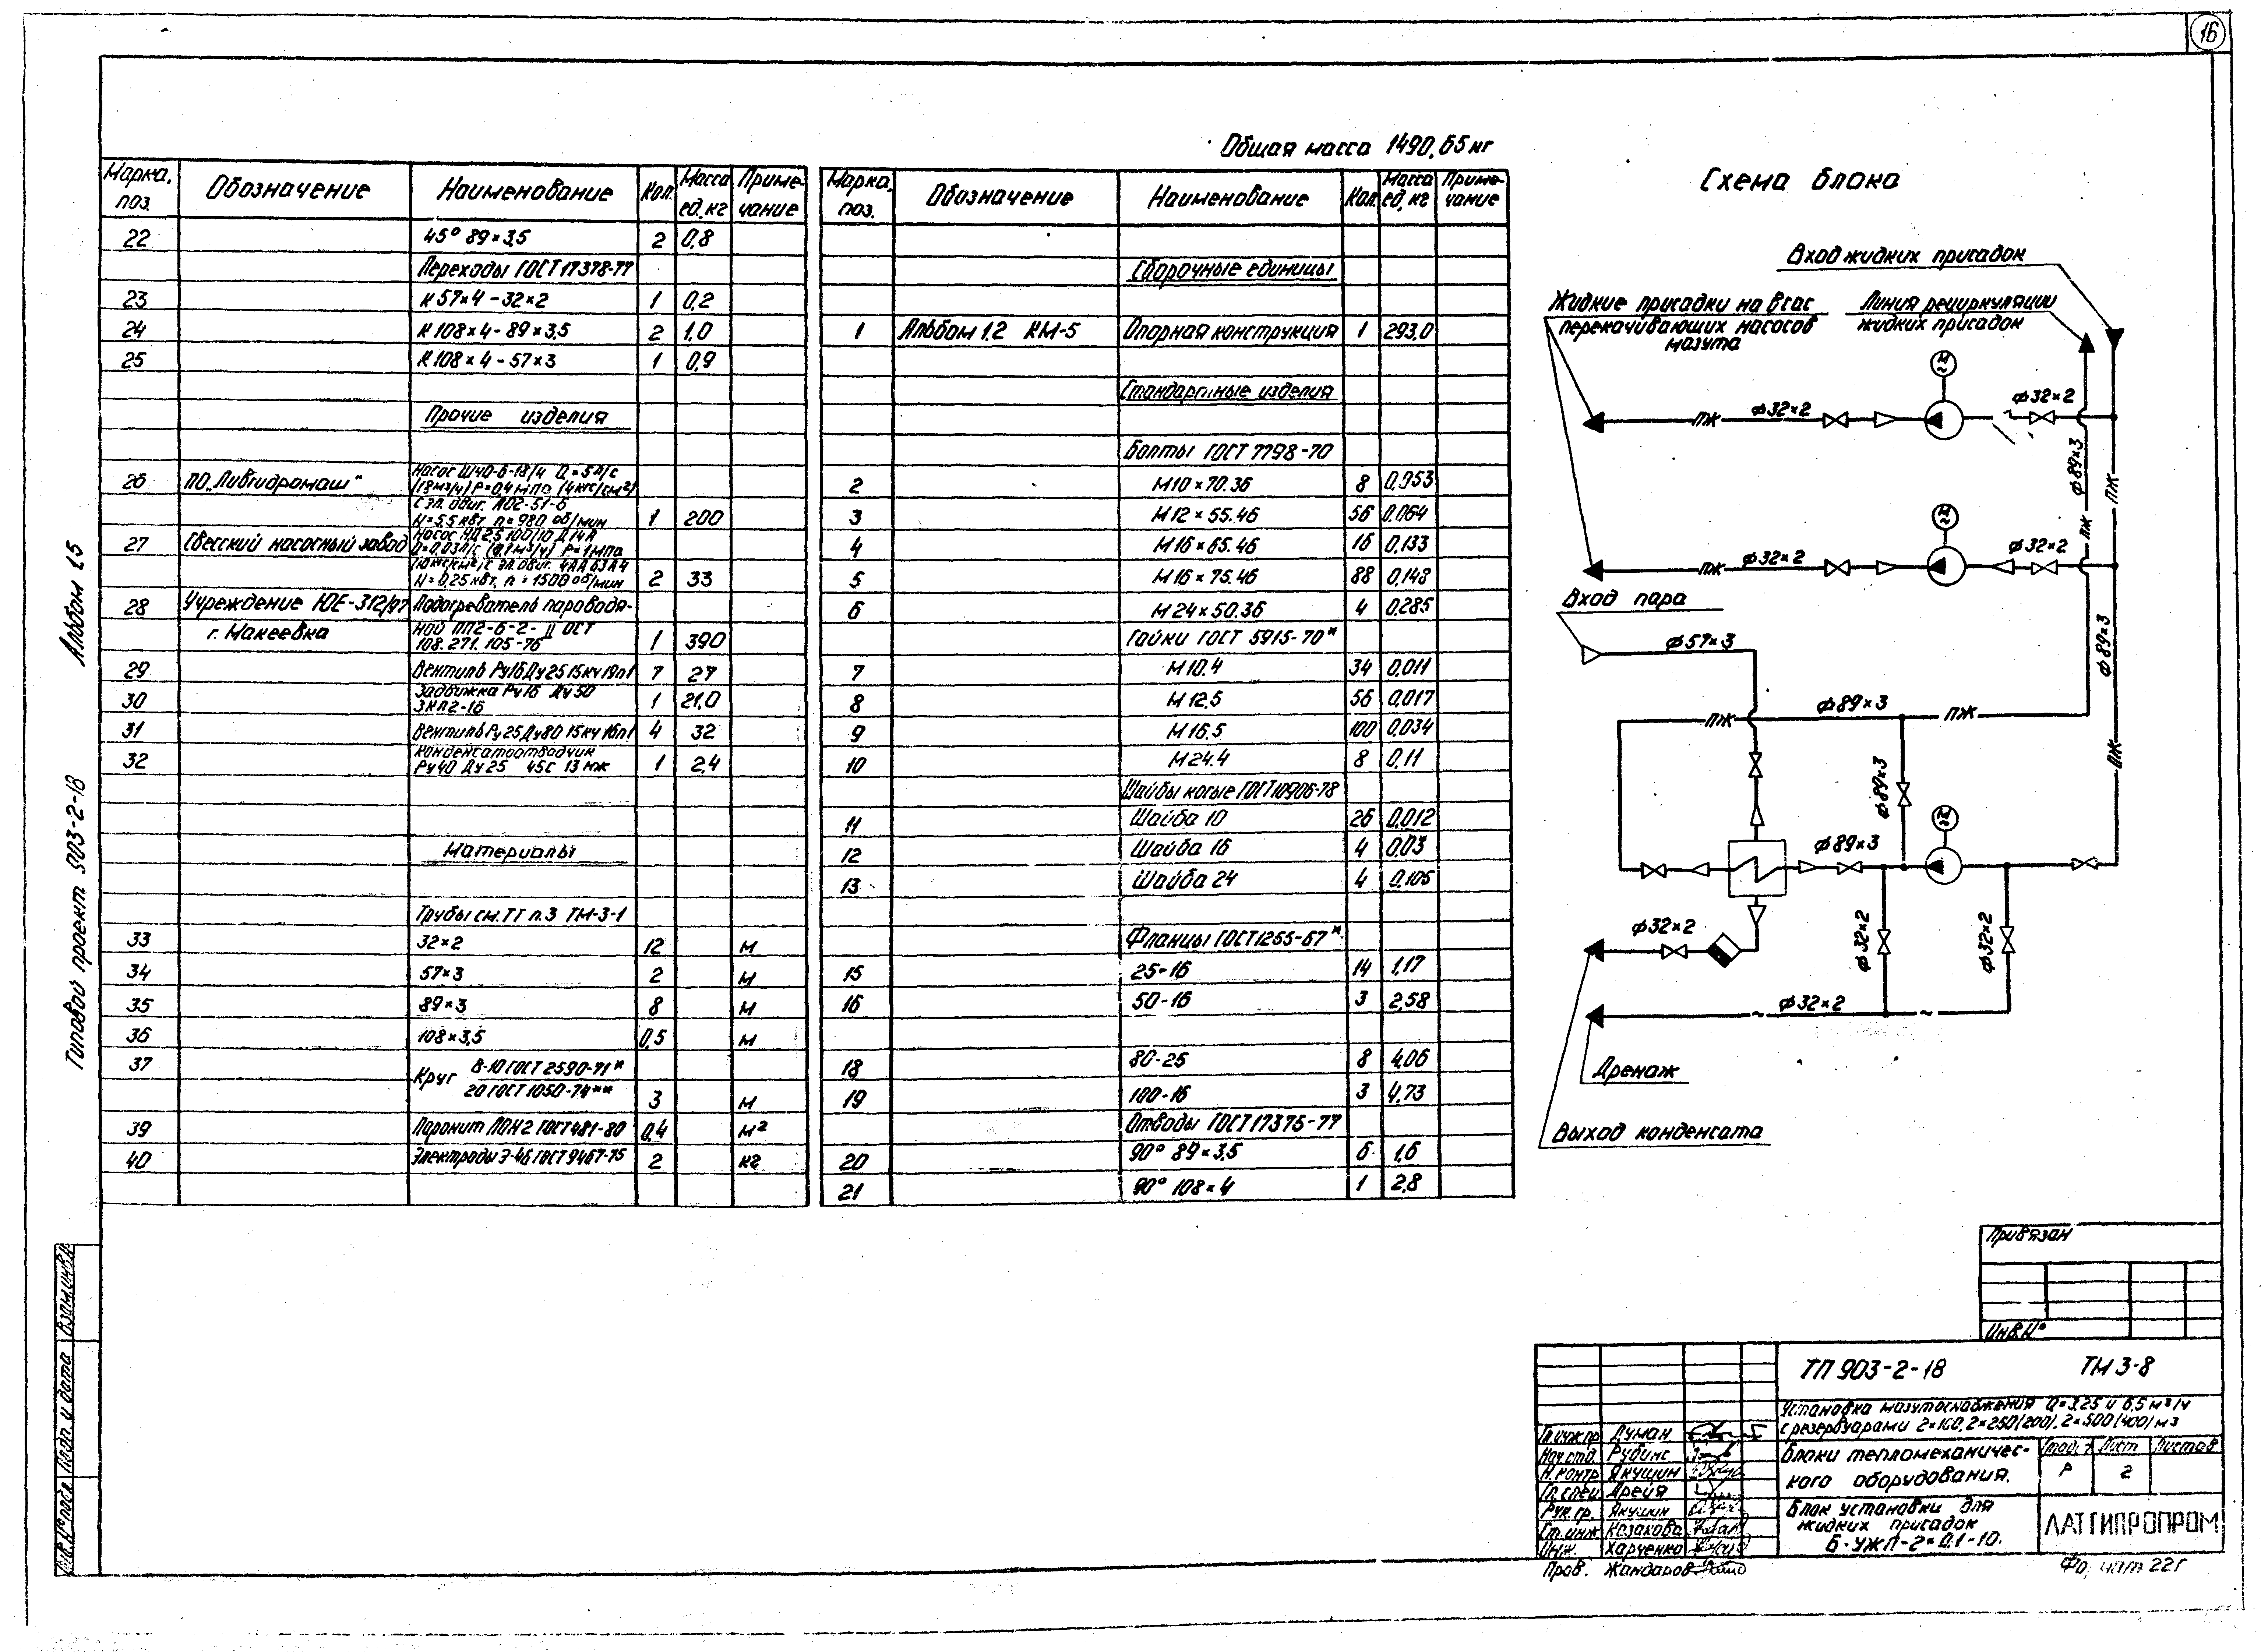 16
Общая масса 1490,65 кг
Марка, поз. Обозначение Наименование Кол. Масса ед, кг Приме-чание
22 45° 89×3,5 2 0,8
Переходы ГОСТ 17378-77
23 К 57×4-32×2 1 0,2
24 К 108×4-89×3,5 2 1,0
25 К 108×4-57×3 1 0,9
Прочие изделия
26 ПО „Ливгидромаш" Насос Ш40-6-18/4 Q=5л/с
(18м3/ч) Р=0,4мпа (4кгс/см²)
с эл. двиг. АО2-51-6
N=5,5 квт n=980 об/мин 1 200
27 Свесский насосный завод Насос НД 25 100/10 Д 14А
Q=0,03л/с (0,1м³/ч) Р=1мпа
(10кгс/см²) с эл. двиг. 4АА63А4
N=0,25 квт, n=1500 об/мин 2 33
28 Учреждение ЮЕ-312/97 Подогреватель пароводя-
г. Макеевка ной ПП2-6-2-II ОСТ
108.271.105-76 1 390
29 Вентиль Ру16 Ду25 15кч19п1 7 27
30 Задвижка Ру16 Ду50
ЗКЛ2-16 1 21,0
31 Вентиль Ру25 Ду80 15кч16п1 4 32
32 Конденсатоотводчик
Ру40 Ду25 45с 13нж 1 2,4
Материалы
Трубы см. ТТ п.3 ТМ-3-1
33 32×2 12 м
34 57×3 2 м
35 89×3 8 м
36 108×3,5 0,5 м
37 Круг В-10 ГОСТ 2590-71*
20 ГОСТ 1050-74** 3 м
39 Паронит ПОН2 ГОСТ 481-80 0,4 м²
40 Электроды Э-46 ГОСТ 9467-75 2 кг
Марка, поз. Обозначение Наименование Кол. Масса ед, кг Приме-чание
Сборочные единицы
1 Альбом 1.2 КМ-5 Опорная конструкция 1 293,0
Стандартные изделия
Болты ГОСТ 7798-70
2 М10×70.36 8 0,053
3 М12×55.46 56 0,064
4 М16×65.46 16 0,133
5 М16×75.46 88 0,148
6 М24×50.36 4 0,285
Гайки ГОСТ 5915-70*
7 М10.4 34 0,011
8 М12.5 56 0,017
9 М16.5 100 0,034
10 М24.4 8 0,11
Шайбы косые ГОСТ 10906-78
11 Шайба 10 26 0,012
12 Шайба 16 4 0,03
13 Шайба 24 4 0,105
Фланцы ГОСТ 1255-67*
15 25-16 14 1,17
16 50-16 3 2,58
18 80-25 8 4,06
19 100-16 3 4,73
Отводы ГОСТ 17375-77
20 90° 89×3,5 6 1,6
21 90° 108×4 1 2,8
Схема блока
Вход жидких присадок
Жидкие присадки на всас
перекачивающих насосов
мазута
Линия рециркуляции
жидких присадок
М
~
ПЖ ф32×2 ф32×2
ф89×3
ПЖ
ПЖ
М
~
ПЖ ф32×2 ф32×2
Вход пара
ф57×3
ф89×3
ПЖ ф89×3 ПЖ
ПЖ
ф89×3
М
~
ф89×3
ф32×2
ф32×2
ф32×2
ф32×2
Дренаж
Выход конденсата
Типовой проект 903-2-18 Альбом 1.5
Инв. № подл. Подп. и дата Взам. инв. №
Привязан
Инв.№
ТП 903-2-18 ТМ 3-8
Установка мазутоснабжения Q=3,25 и 6,5 м³/ч
с резервуарами 2×100, 2×250(200), 2×500(400) м3
Гл.инж.пр Думан
Нач.отд. Рубинс
Н.контр Якушин
Гл.спец Дрейя
Рук.гр. Якушин
Ст.инж Казакова
Инж. Харченко
Пров. Жандаров
Блоки тепломеханичес-
кого оборудования.
Стадия Лист Листов
Р 2
Блок установки для
жидких присадок
Б-УЖП-2×0,1-10.
ЛАТГИПРОПРОМ
Формат 22г